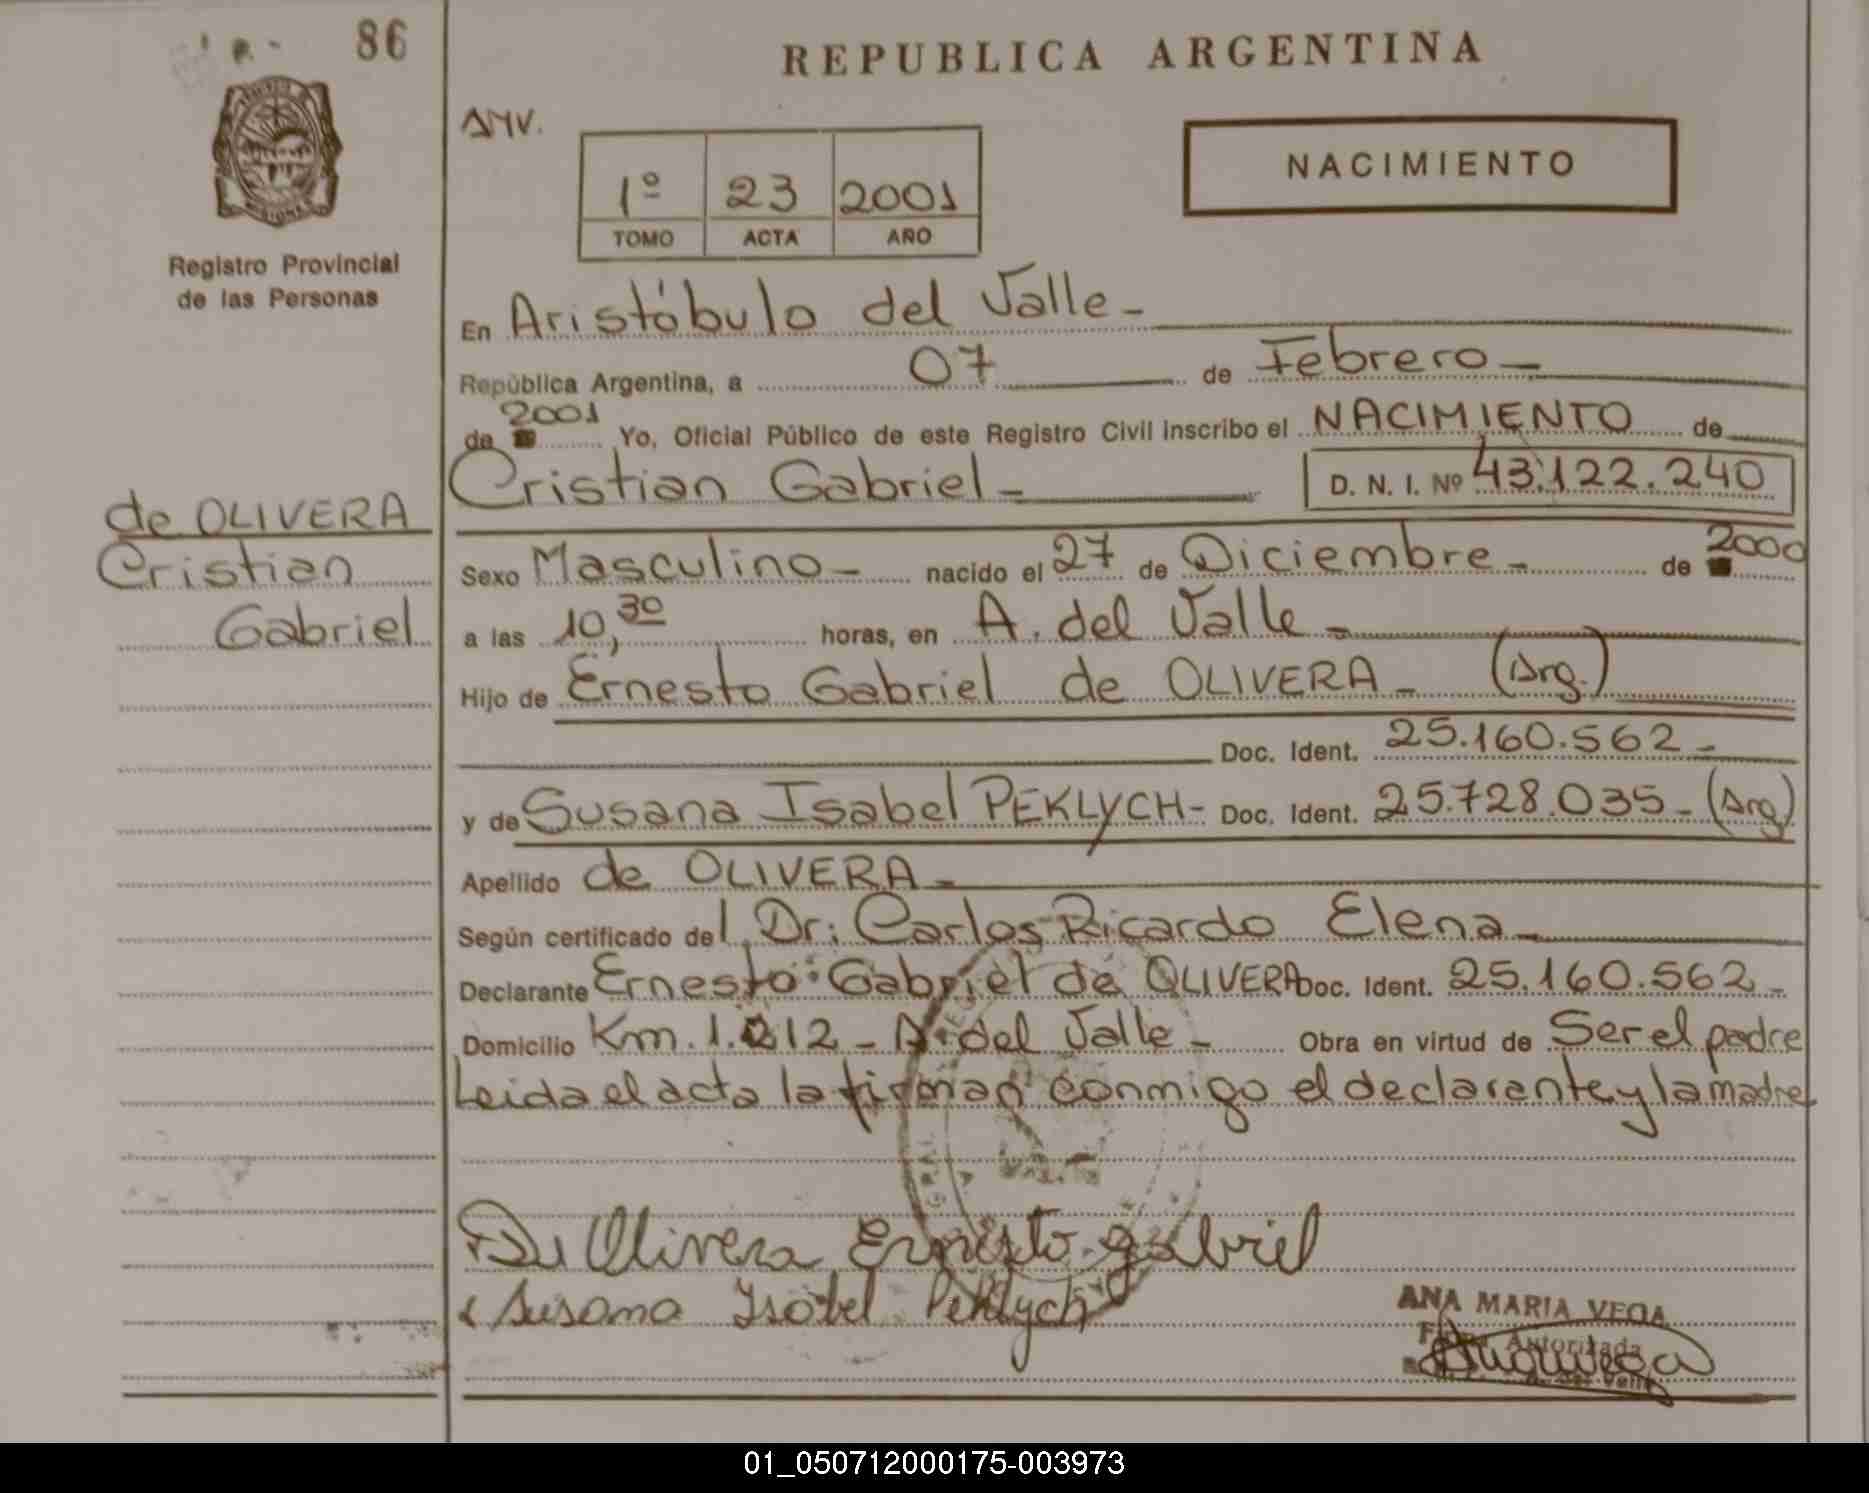 86
REPUBLICA ARGENTINA
AMV.
NACIMIENTO
1º 23 2001
TOMO ACTA AÑO
Registro Provincial
de las Personas
En Aristóbulo del Valle -
República Argentina, a 07 de Febrero -
de 2001 Yo, Oficial Público de este Registro Civil inscribo el NACIMIENTO de
Cristian Gabriel - D. N. I. Nº 43.122.240
de OLIVERA
Cristian
Gabriel
Sexo Masculino - nacido el 27 de Diciembre - de 2000
a las 10,30 horas, en A. del Valle -
Hijo de Ernesto Gabriel de OLIVERA - (Arg.)
Doc. Ident. 25.160.562 -
y de Susana Isabel PEKLYCH - Doc. Ident. 25.728.035 - (Arg)
Apellido de OLIVERA -
Según certificado del Dr: Carlos Ricardo Elena -
Declarante Ernesto Gabriel de OLIVERA Doc. Ident. 25.160.562 -
Domicilio Km. 1.212 - A. del Valle - Obra en virtud de Ser el padre
Leida el acta la firman conmigo el declarante y la madre
De Olivera Ernesto gabriel
Susana Isabel Peklych
ANA MARIA VEGA
Autorizada
01_050712000175-003973